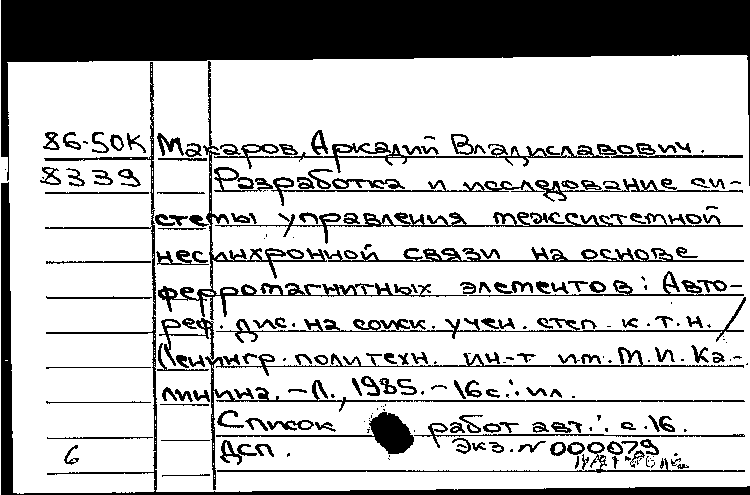 86-50К Макаров, Аркадий Владиславович.
8339 Разработка и исследование си-
стемы управления межсистемной
несинхронной связи на основе
ферромагнитных элементов: Авто-
реф. дис. на соиск. учен. степ. к.т.н. /
Ленингр. политехн. ин-т им. М.И. Ка-
линина. -Л., 1985. -16с.: ил.
Список работ авт.: с.16.
6 ДСП. Экз. N 000079